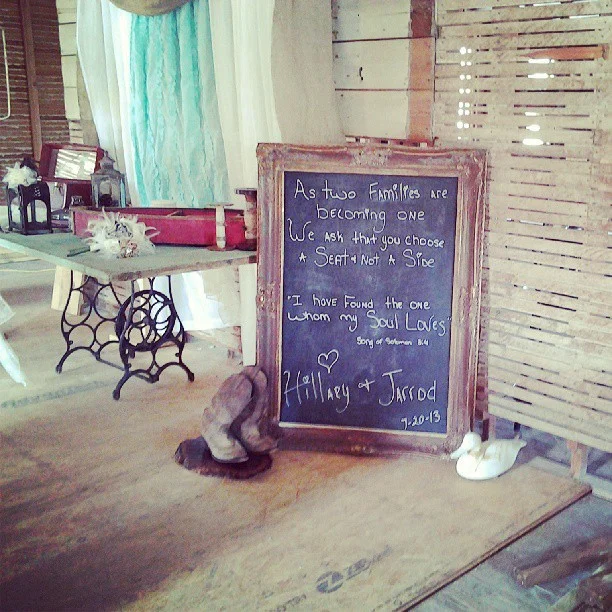 As two Families are
becoming one
We ask that you choose
a Seat & Not a Side
"I have found the one
whom my Soul Loves"
Song of Solomon 3:4
Hillary & Jarrod
9-20-13